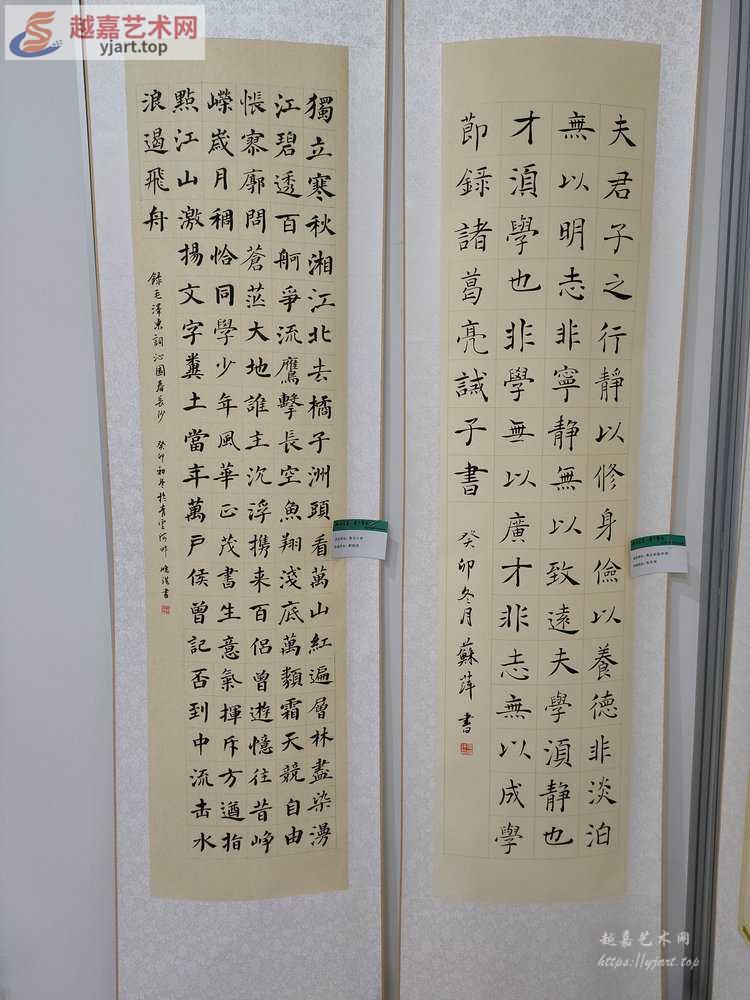 越嘉艺术网
yjart.top
夫君子之行靜以修身儉以養德非淡泊
無以明志非寧靜無以致遠夫學湏靜也
才湏學也非學無以廣才非志無以成學
節録諸葛亮誡子書
癸卯冬月蘇萍書
獨立寒秋湘江北去橘子洲頭看萬山紅遍層林盡染漫
江碧透百舸爭流鷹擊長空魚翔淺底萬類霜天競自由
悵寥廓問蒼茫大地誰主沉浮携来百侶曾遊憶往昔崢
嶸歲月稠恰同學少年風華正茂書生意氣揮斥方遒指
點江山激揚文字糞土當年萬戶侯曾記否到中流击水
浪遏飛舟
錄毛澤東詞沁園春長沙 癸卯初冬於青雲
越嘉艺术网
https://yjart.top